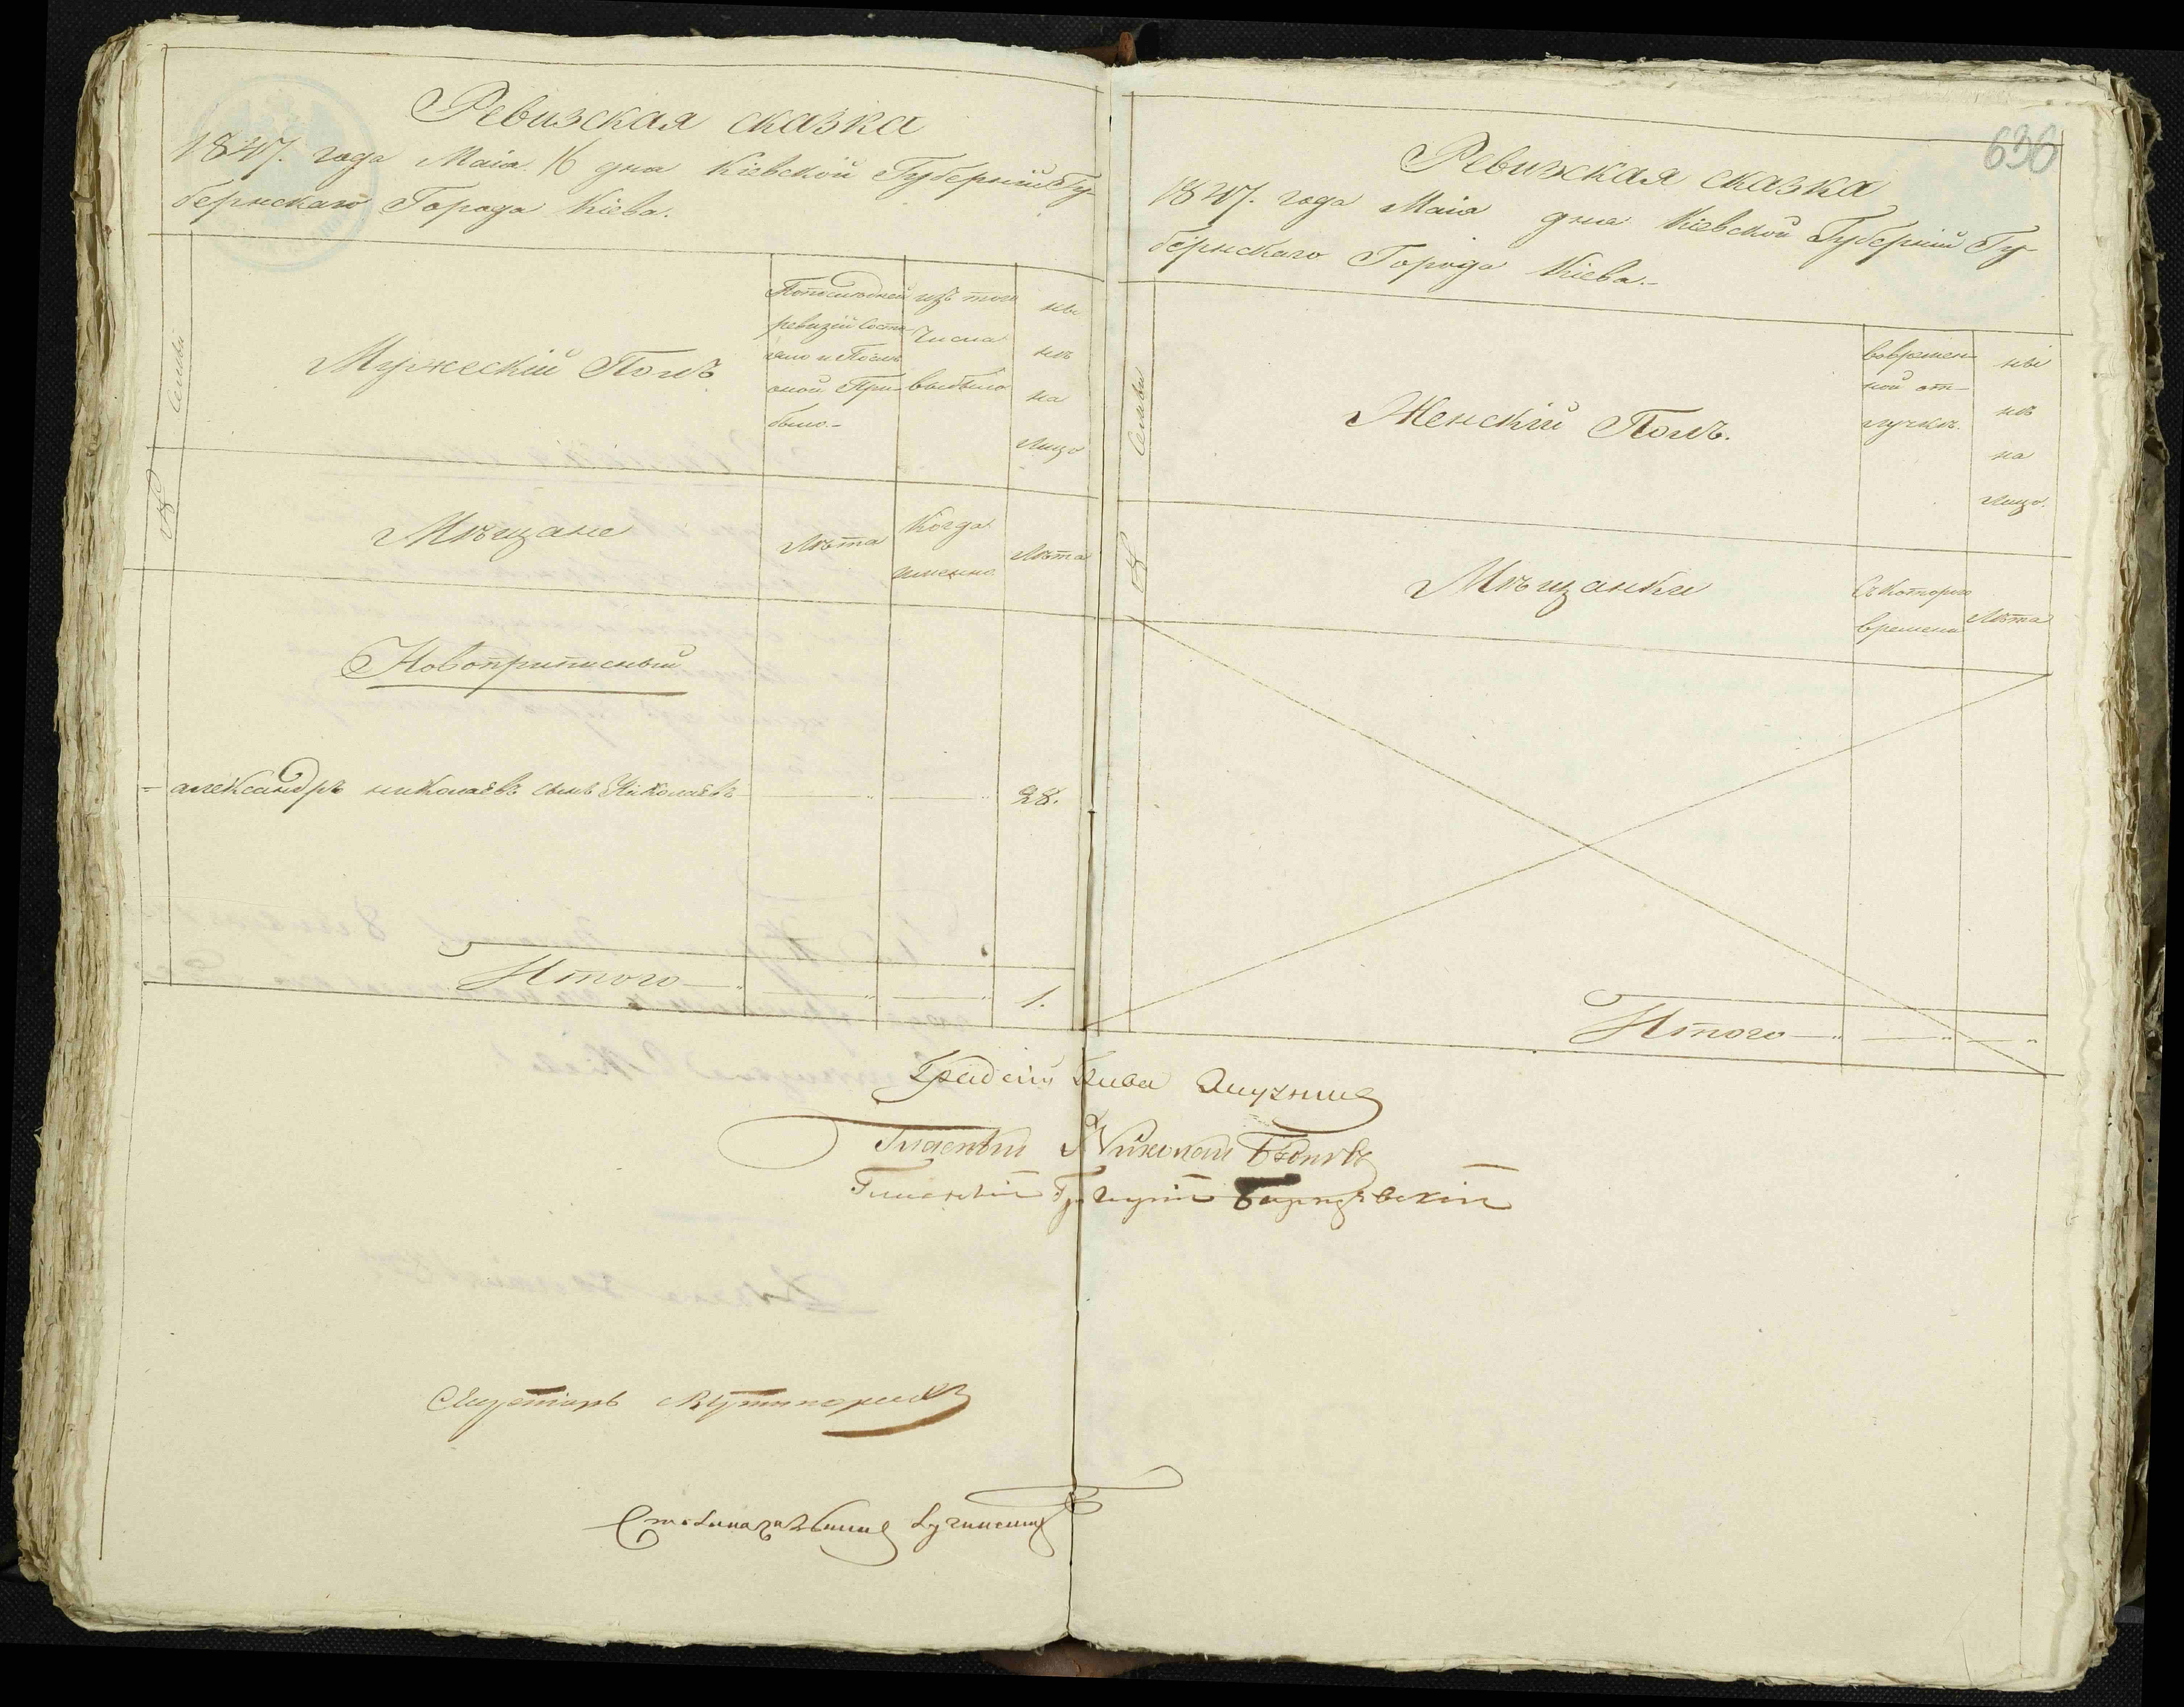 Ревизская сказка
1847. года Маія 16 дня Кіевской Губерніи Гу-
бернскаго Города Кіева.
Семьи
Мужескій Полъ
По последней
ревизіи состо-
яло и После
оной При-
было.-
изъ того
числа
выбыло
ны
нѣ
на
Лицо
№
Мѣщане
Лѣта
Когда
именно
Лѣта
Новоприписный
александръ николаевъ сынъ Николаевъ 28.
Итого 1.
636
Ревизская сказка
1847. года Маія дня Кіевской Губерніи Гу-
бернскаго Города Кіева.-
Семьи
Женскій Полъ.
вовремен-
ной от-
лучкѣ.
ны
нѣ
на
лицо.
№
Мѣщанки
Съ которого
времени
Лѣта
Итого
Гласный Николай
Гласный Григорій